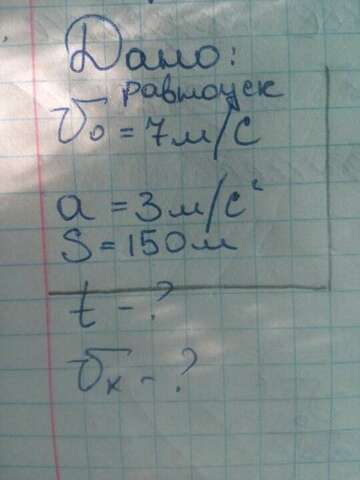 Дано:
равноуск
v₀ = 7м/с
a = 3м/с²
S = 150м
t - ?
vₓ - ?